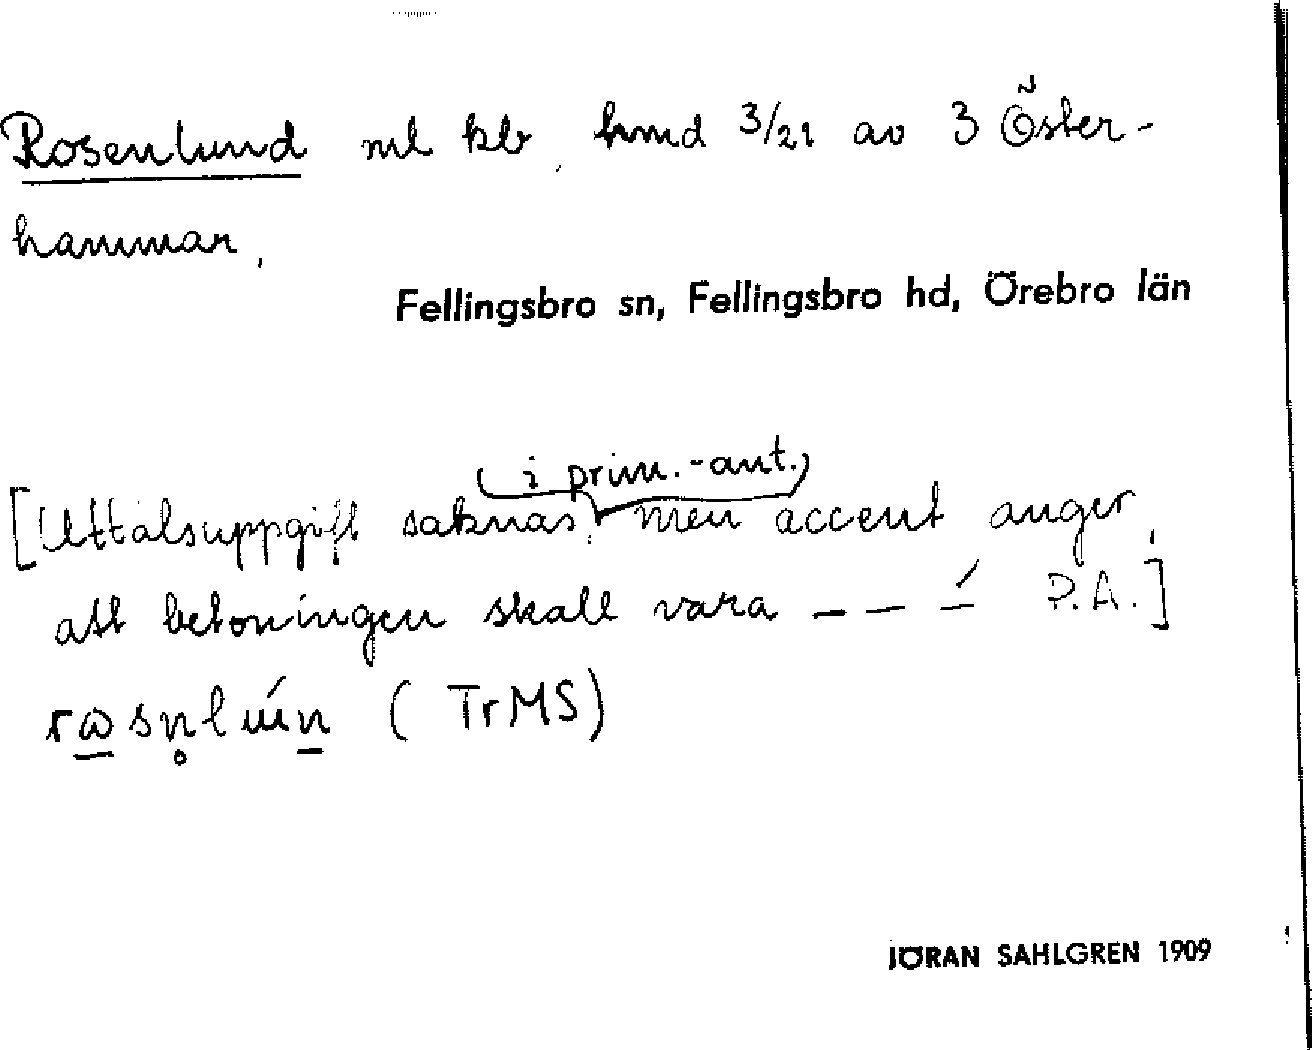 Rosenlund ml klr, hmd 3/21 av 3 Öster-
hammar,
Fellingsbro sn, Fellingsbro hd, Örebro län
(i prim.-ant.)
[Uttalsuppgift saknas, men accent anger,
att betoningen skall vara – – –́ P.A.]
rasn̥lún (TrMS)
JÖRAN SAHLGREN 1909